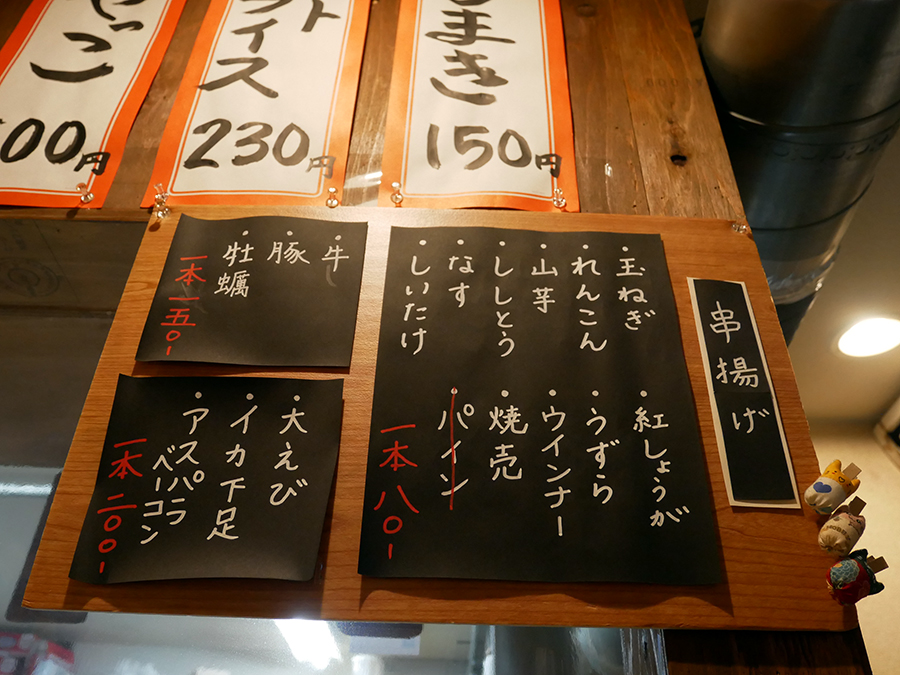 まき
150円
ト
イス
230円
00円
串揚げ
・玉ねぎ
・れんこん
・山芋
・ししとう
・なす
・しいたけ
・紅しょうが
・うずら
・ウインナー
・焼売
・パイン
一本八〇-
・牛
・豚
・牡蠣
一本一五〇-
・大えび
・イカ下足
・アスパラ
ベーコン
一本二〇〇-